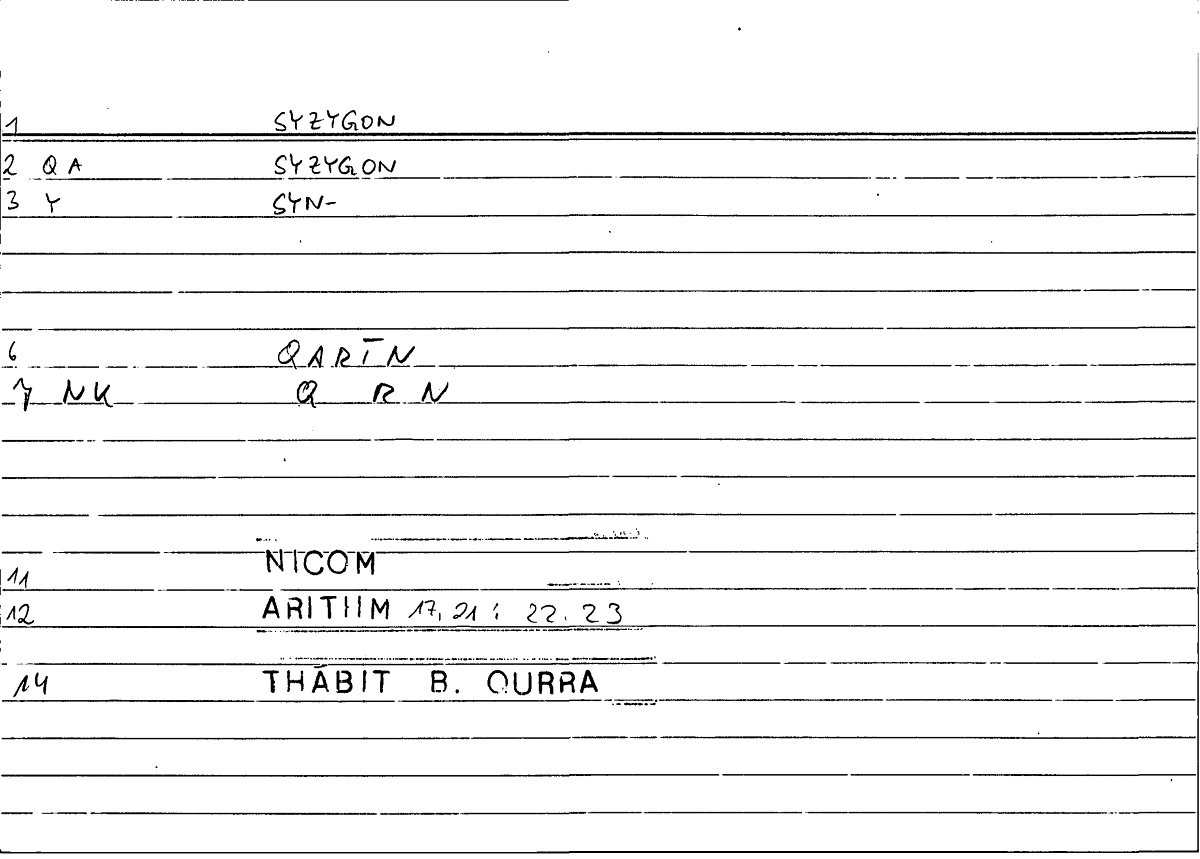 1 SYZYGON
2 QA SYZYGON
3 Y SYN-
6 QARĪN
7 NK Q R N
NICOM
11
12 ARITHM 17, 21 ; 22. 23
14 THĀBIT B. QURRA